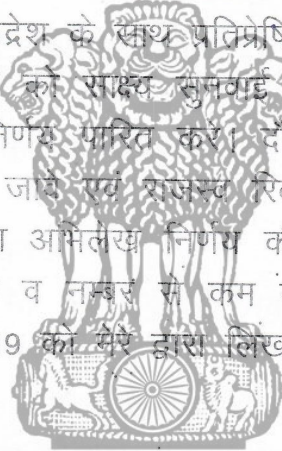 द्रेश के साथ प्रतिप्रेषि
को साक्ष्य सुनवाई
निर्णय पारित करे। दो
जावे एवं राजस्व रि
अभिलेख निर्णय क
व नम्बर से कम
9 को मेरे द्वारा लिख